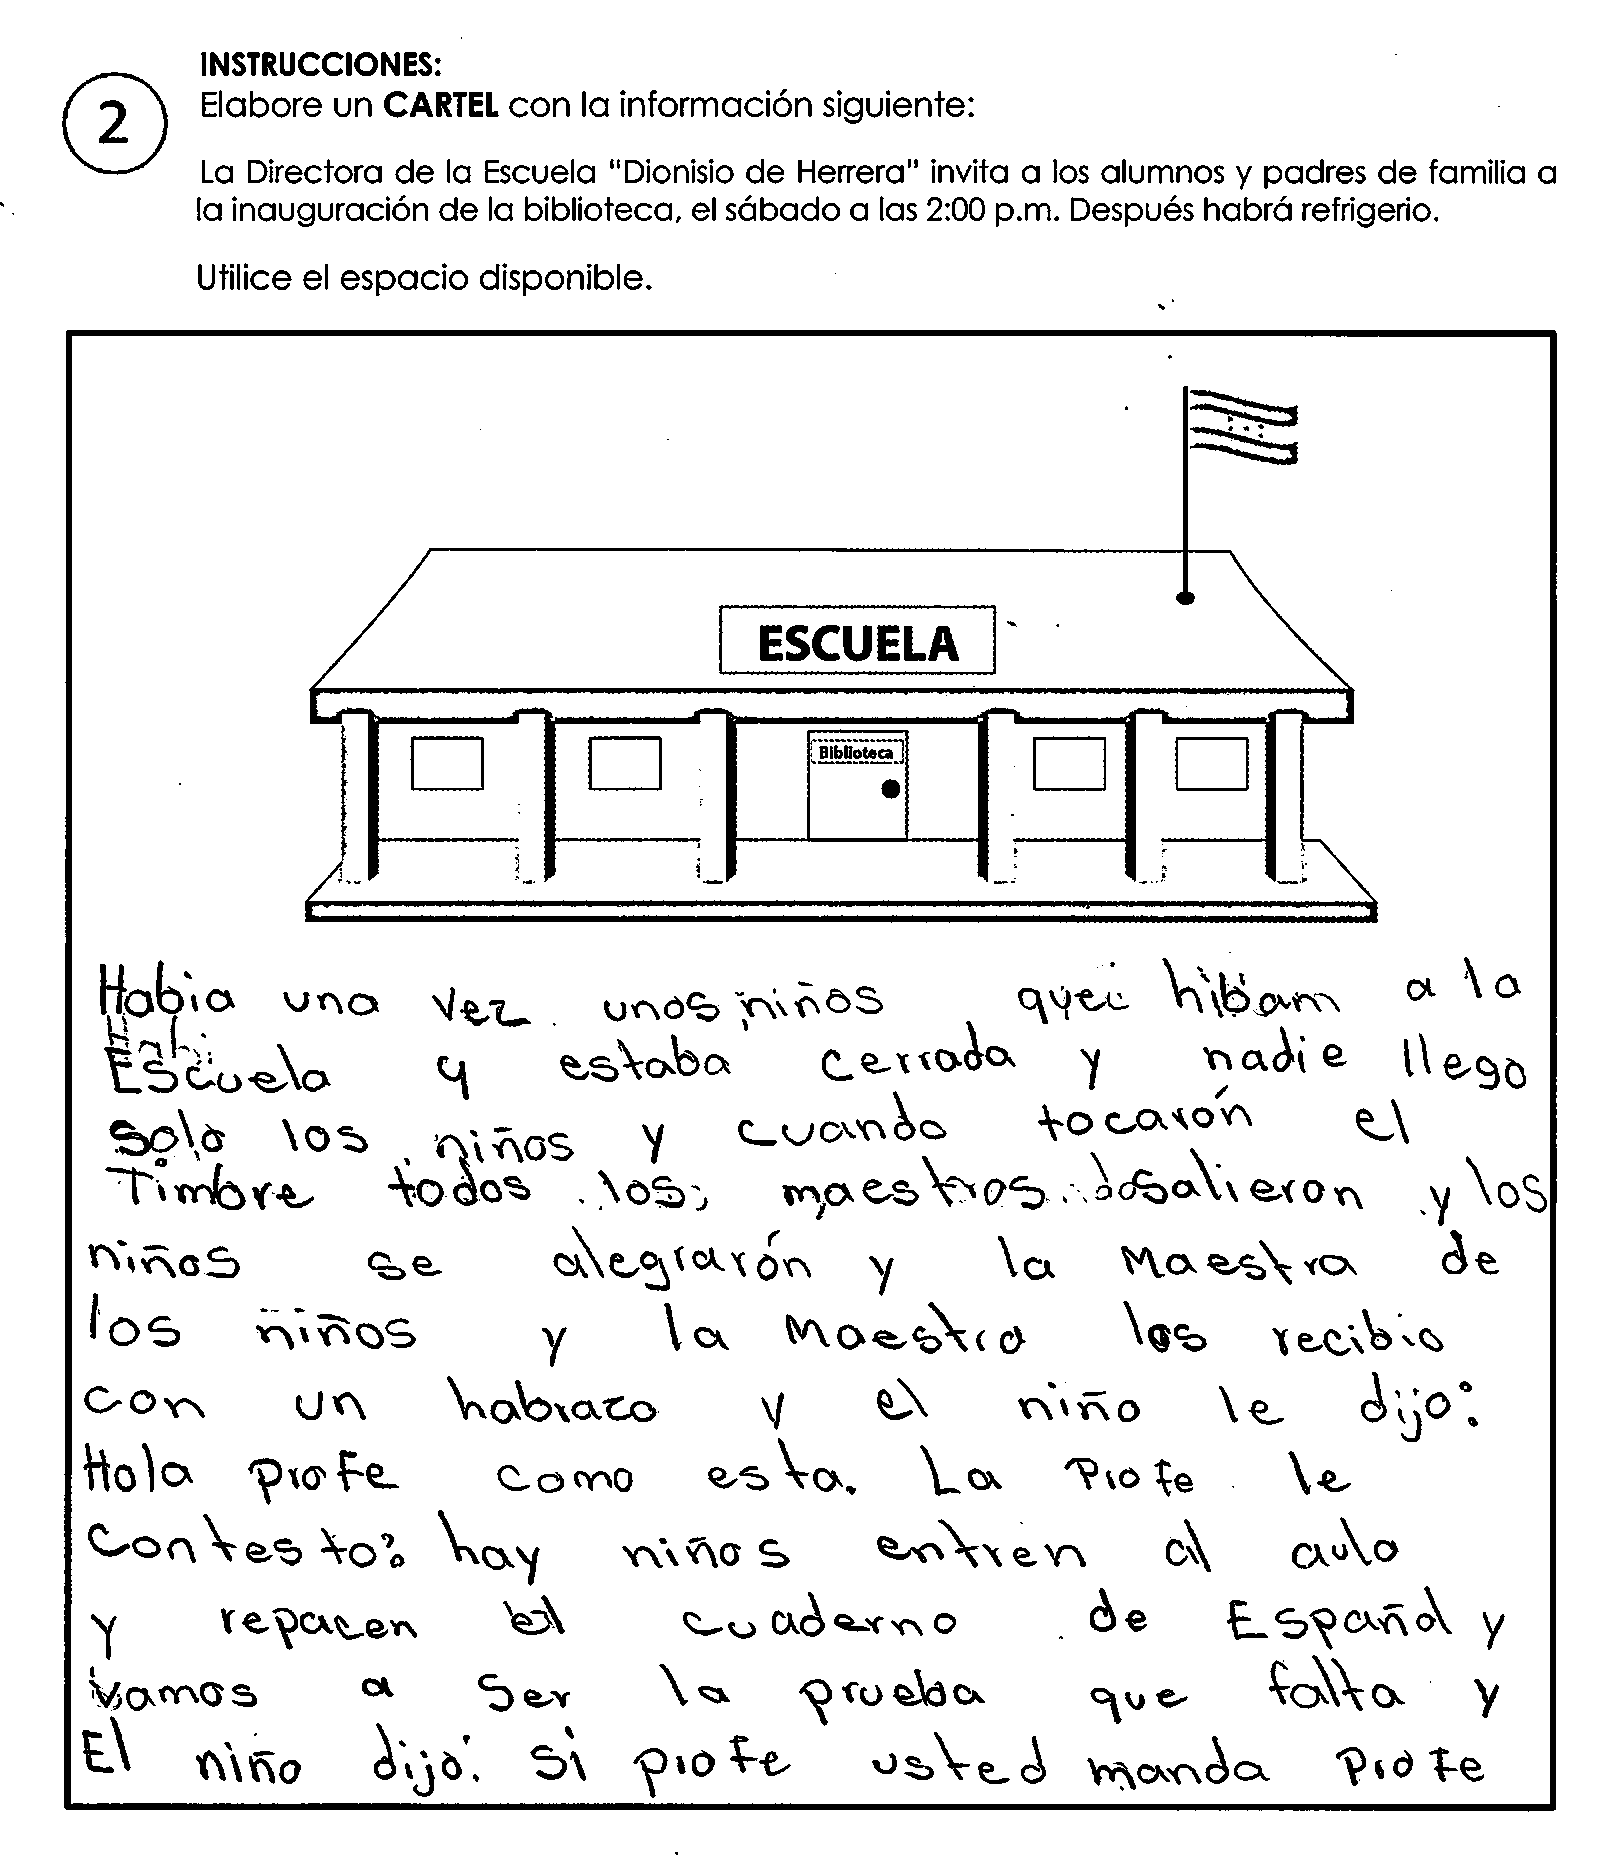 INSTRUCCIONES:
2
Elabore un CARTEL con la información siguiente:
La Directora de la Escuela "Dionisio de Herrera" invita a los alumnos y padres de familia a
la inauguración de la biblioteca, el sábado a las 2:00 p.m. Después habrá refrigerio.
Utilice el espacio disponible.
ESCUELA
Biblioteca
Habia una vez unos niños que hibam a la
Escuela y estaba cerrada y nadie llego
solo los niños y cuando tocarón el
Timbre todos los maestros salieron y los
niños se alegrarón y la Maestra de
los niños y la Maestra los recibio
con un habrazo y el niño le dijo:
Hola profe como esta. La Profe le
contesto: hay niños entren al aula
y repacen el cuaderno de Español y
vamos a Ser la prueba que falta y
El niño dijo: Si profe usted manda Profe